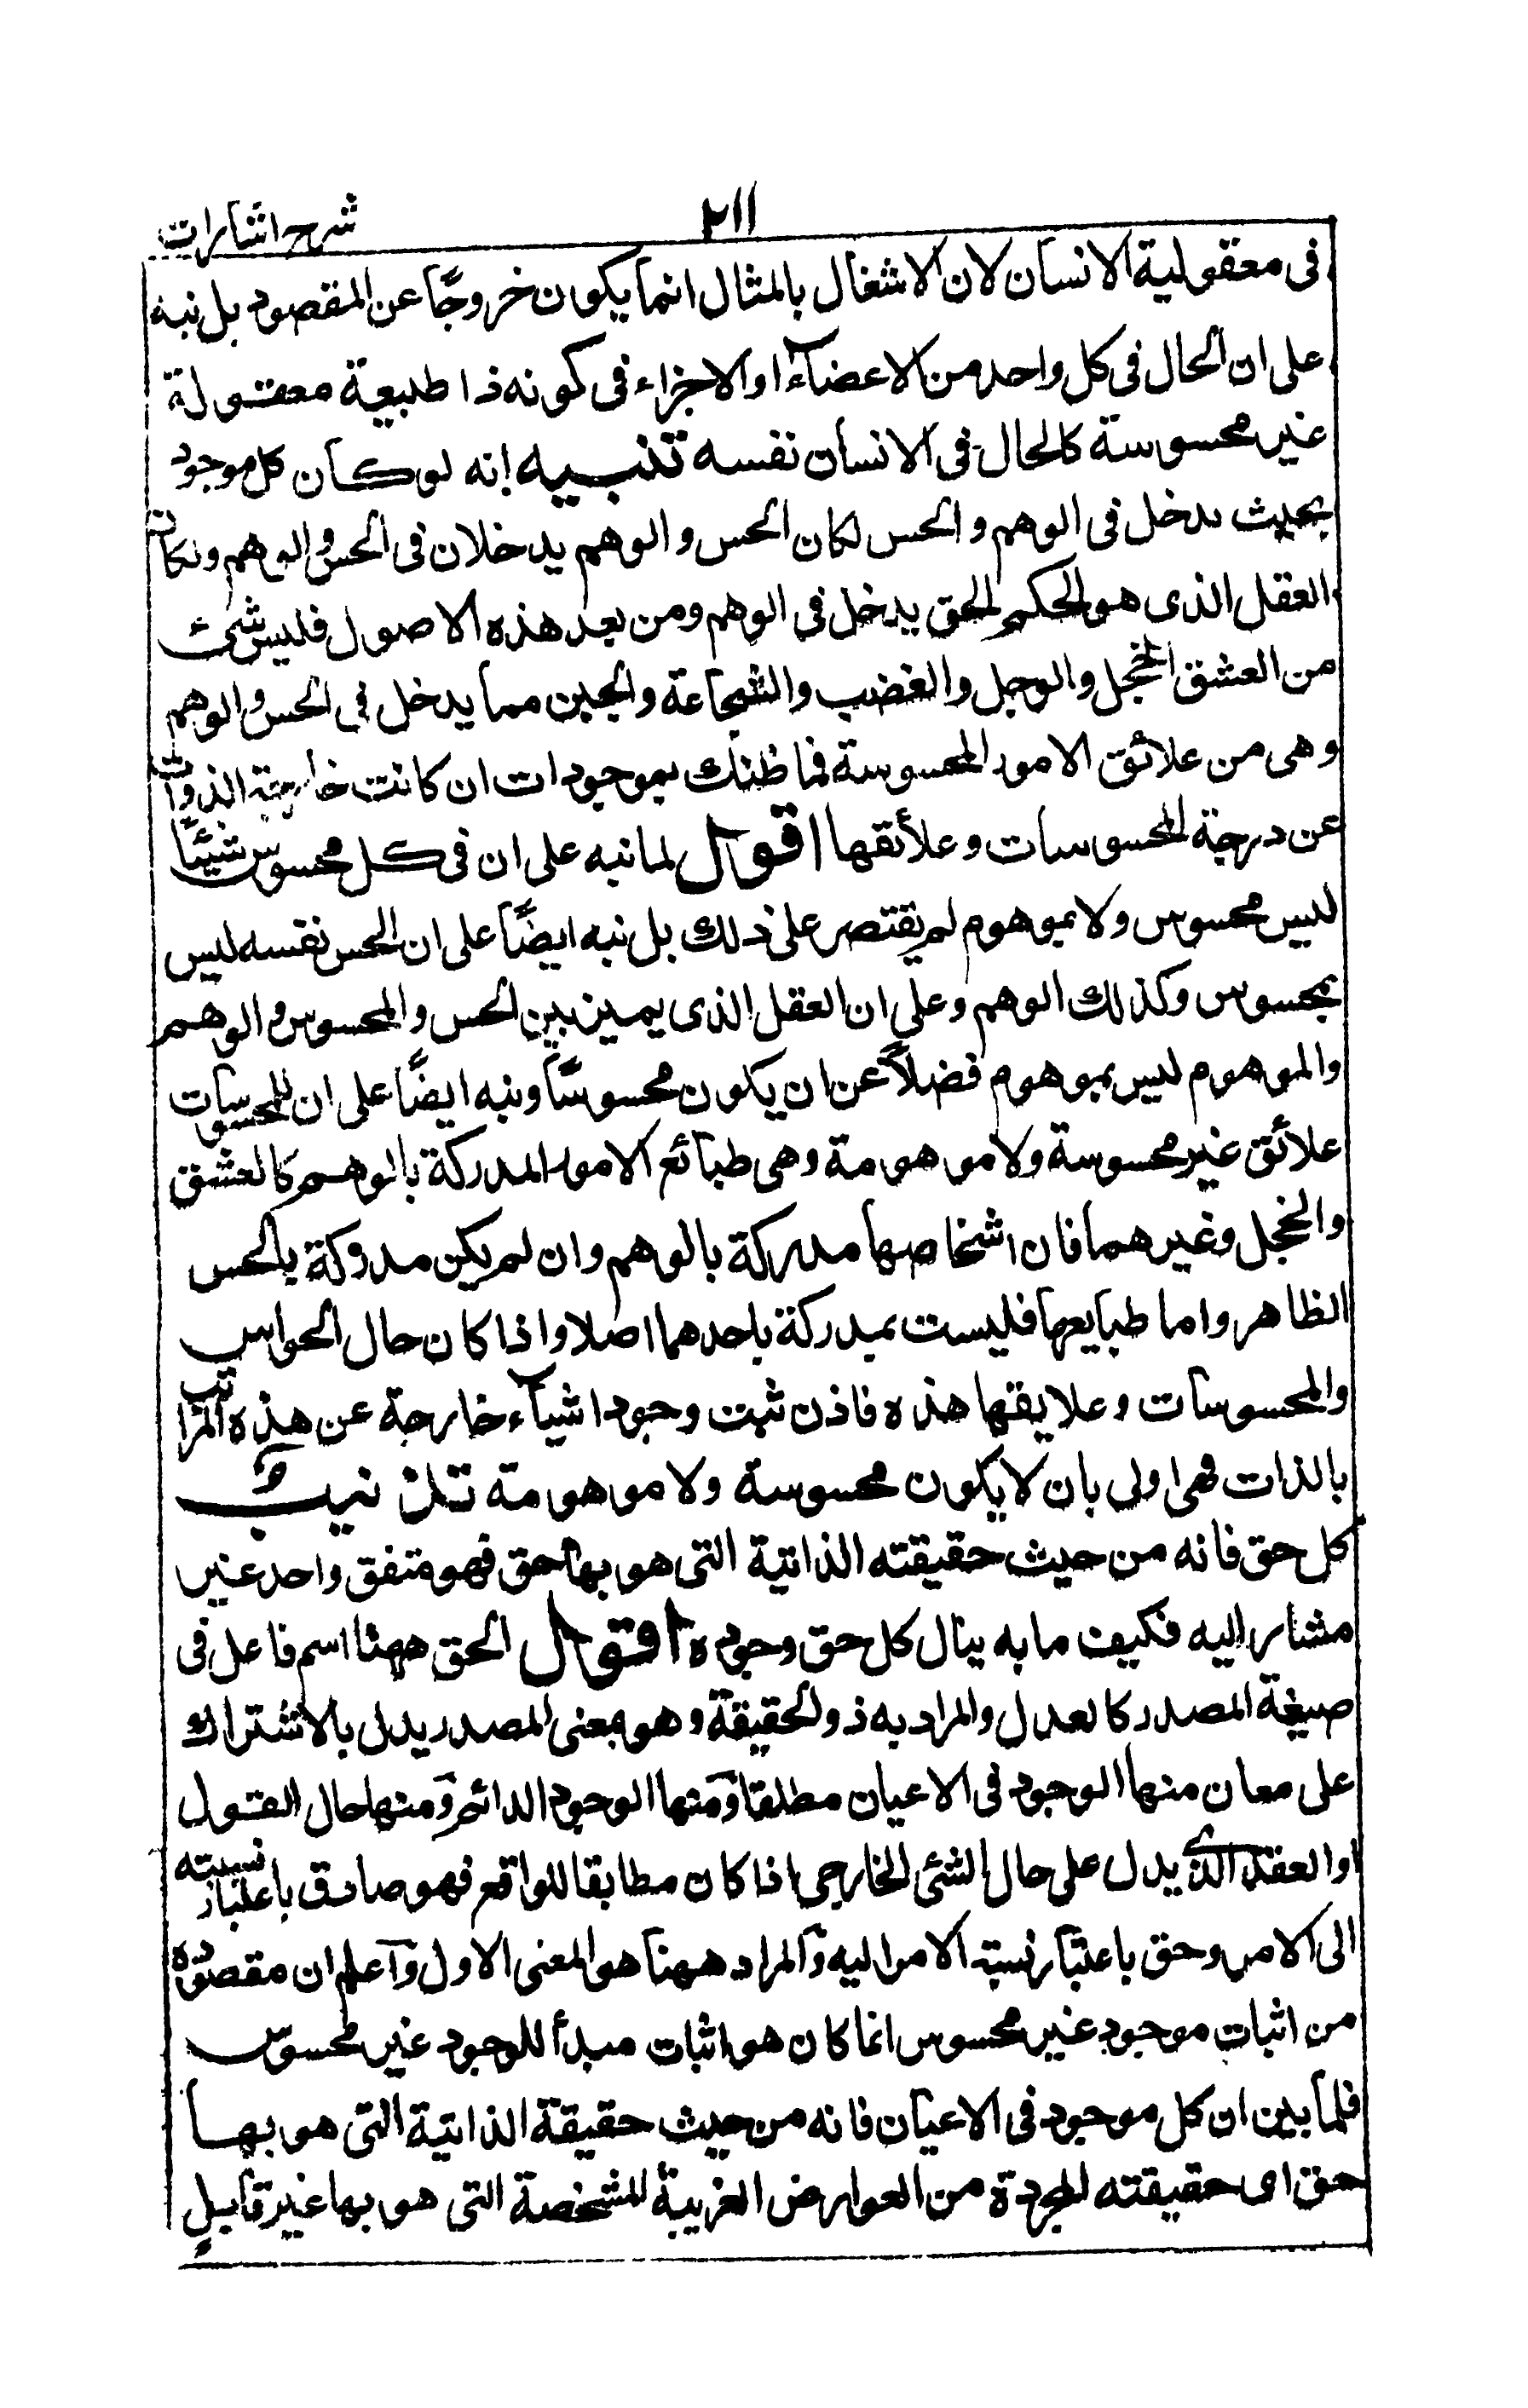 ٢١١
شرح اشارات
فى معقولية الانسان لان الاشغال بالمثال انما يكون خروجًا عن المقصود بل نبه
على ان الحال فى كل واحد من الاعضآء او الاجزاء فى كونه ذا طبيعة معقولة
غير محسوسة كالحال فى الانسان نفسه تنبيه انه لو كان كل موجود
بحيث يدخل فى الوهم والحس لكان الحس والوهم يدخلان فى الحس والوهم ولكان
العقل الذى هو الحكم الحق يدخل فى الوهم ومن بعد هذه الاصول فليس شئ
من العشق الخجل والوجل والغضب والشجاعة والجبن مما يدخل فى الحس والوهم
وهى من علائق الامور المحسوسة فما ظنك بموجودات ان كانت خارجة الذوات
عن درجة المحسوسات وعلائقها اقول لما نبه على ان فى كل محسوس شيئًا
ليس محسوس ولا بموهوم لم يقتصر على ذلك بل نبه ايضًا على ان الحس نفسه ليس
بمحسوس وكذلك الوهم وعلى ان العقل الذى يميز بين الحس والمحسوس والوهم
والموهوم ليس بموهوم فضلًا عن ان يكون محسوسًا ونبه ايضًا على ان للمحسوسات
علائق غير محسوسة ولا موهومة وهى طبائع الامور المدركة بالوهم كالعشق
والخجل وغيرهما فان اشخاصها مدركة بالوهم وان لم يكن مدركة بالحس
الظاهر واما طبايعها فليست بمدركة باحدهما اصلا واذا كان حال الحواس
والمحسوسات وعلايقها هذه فاذن ثبت وجود اشيآء خارجة عن هذه المراتب
بالذات فهى اولى بان لا يكون محسوسة ولا موهومة تذنيب
كل حق فانه من حيث حقيقته الذاتية التى هو بها حق فهو متفق واحد غير
مشار اليه فكيف ما به ينال كل حق وجوده اقول الحق ههنا اسم فاعل فى
صيغة المصدر كالعدل والمراد به ذو الحقيقة وهو بمعنى المصدر يدل بالاشتراك
على معان منها الوجود فى الاعيان مطلقا ومنها الوجود الدائم ومنها حال القول
او العقد الذى يدل على حال الشئ الخارجى اذا كان مطابقا للواقع فهو صادق باعتبار نسبته
الى الامر وحق باعتبار نسبة الامر اليه والمراد ههنا هو المعنى الاول واعلم ان مقصوده
من اثبات موجود غير محسوس انما كان هو اثبات مبدأ للوجود غير محسوس
فلما بين ان كل موجود فى الاعيان فانه من حيث حقيقة الذاتية التى هو بها
حق اى حقيقته المجردة من العوارض الغريبة المشخصة التى هو بها غير قابل